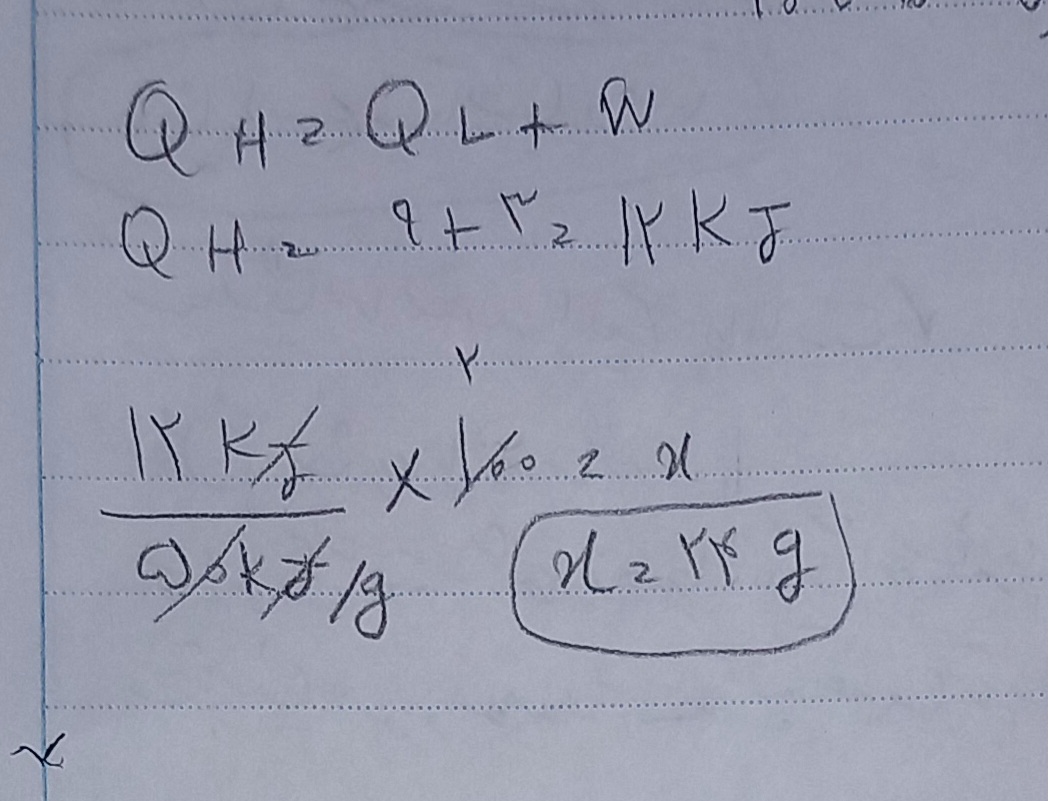 QH = QL + W
QH = ۹ + ۳ = ۱۲ KJ
۲
۱۲ KJ / ۵۰ KJ/g × ۱۰۰ = x
x = ۲۴ g